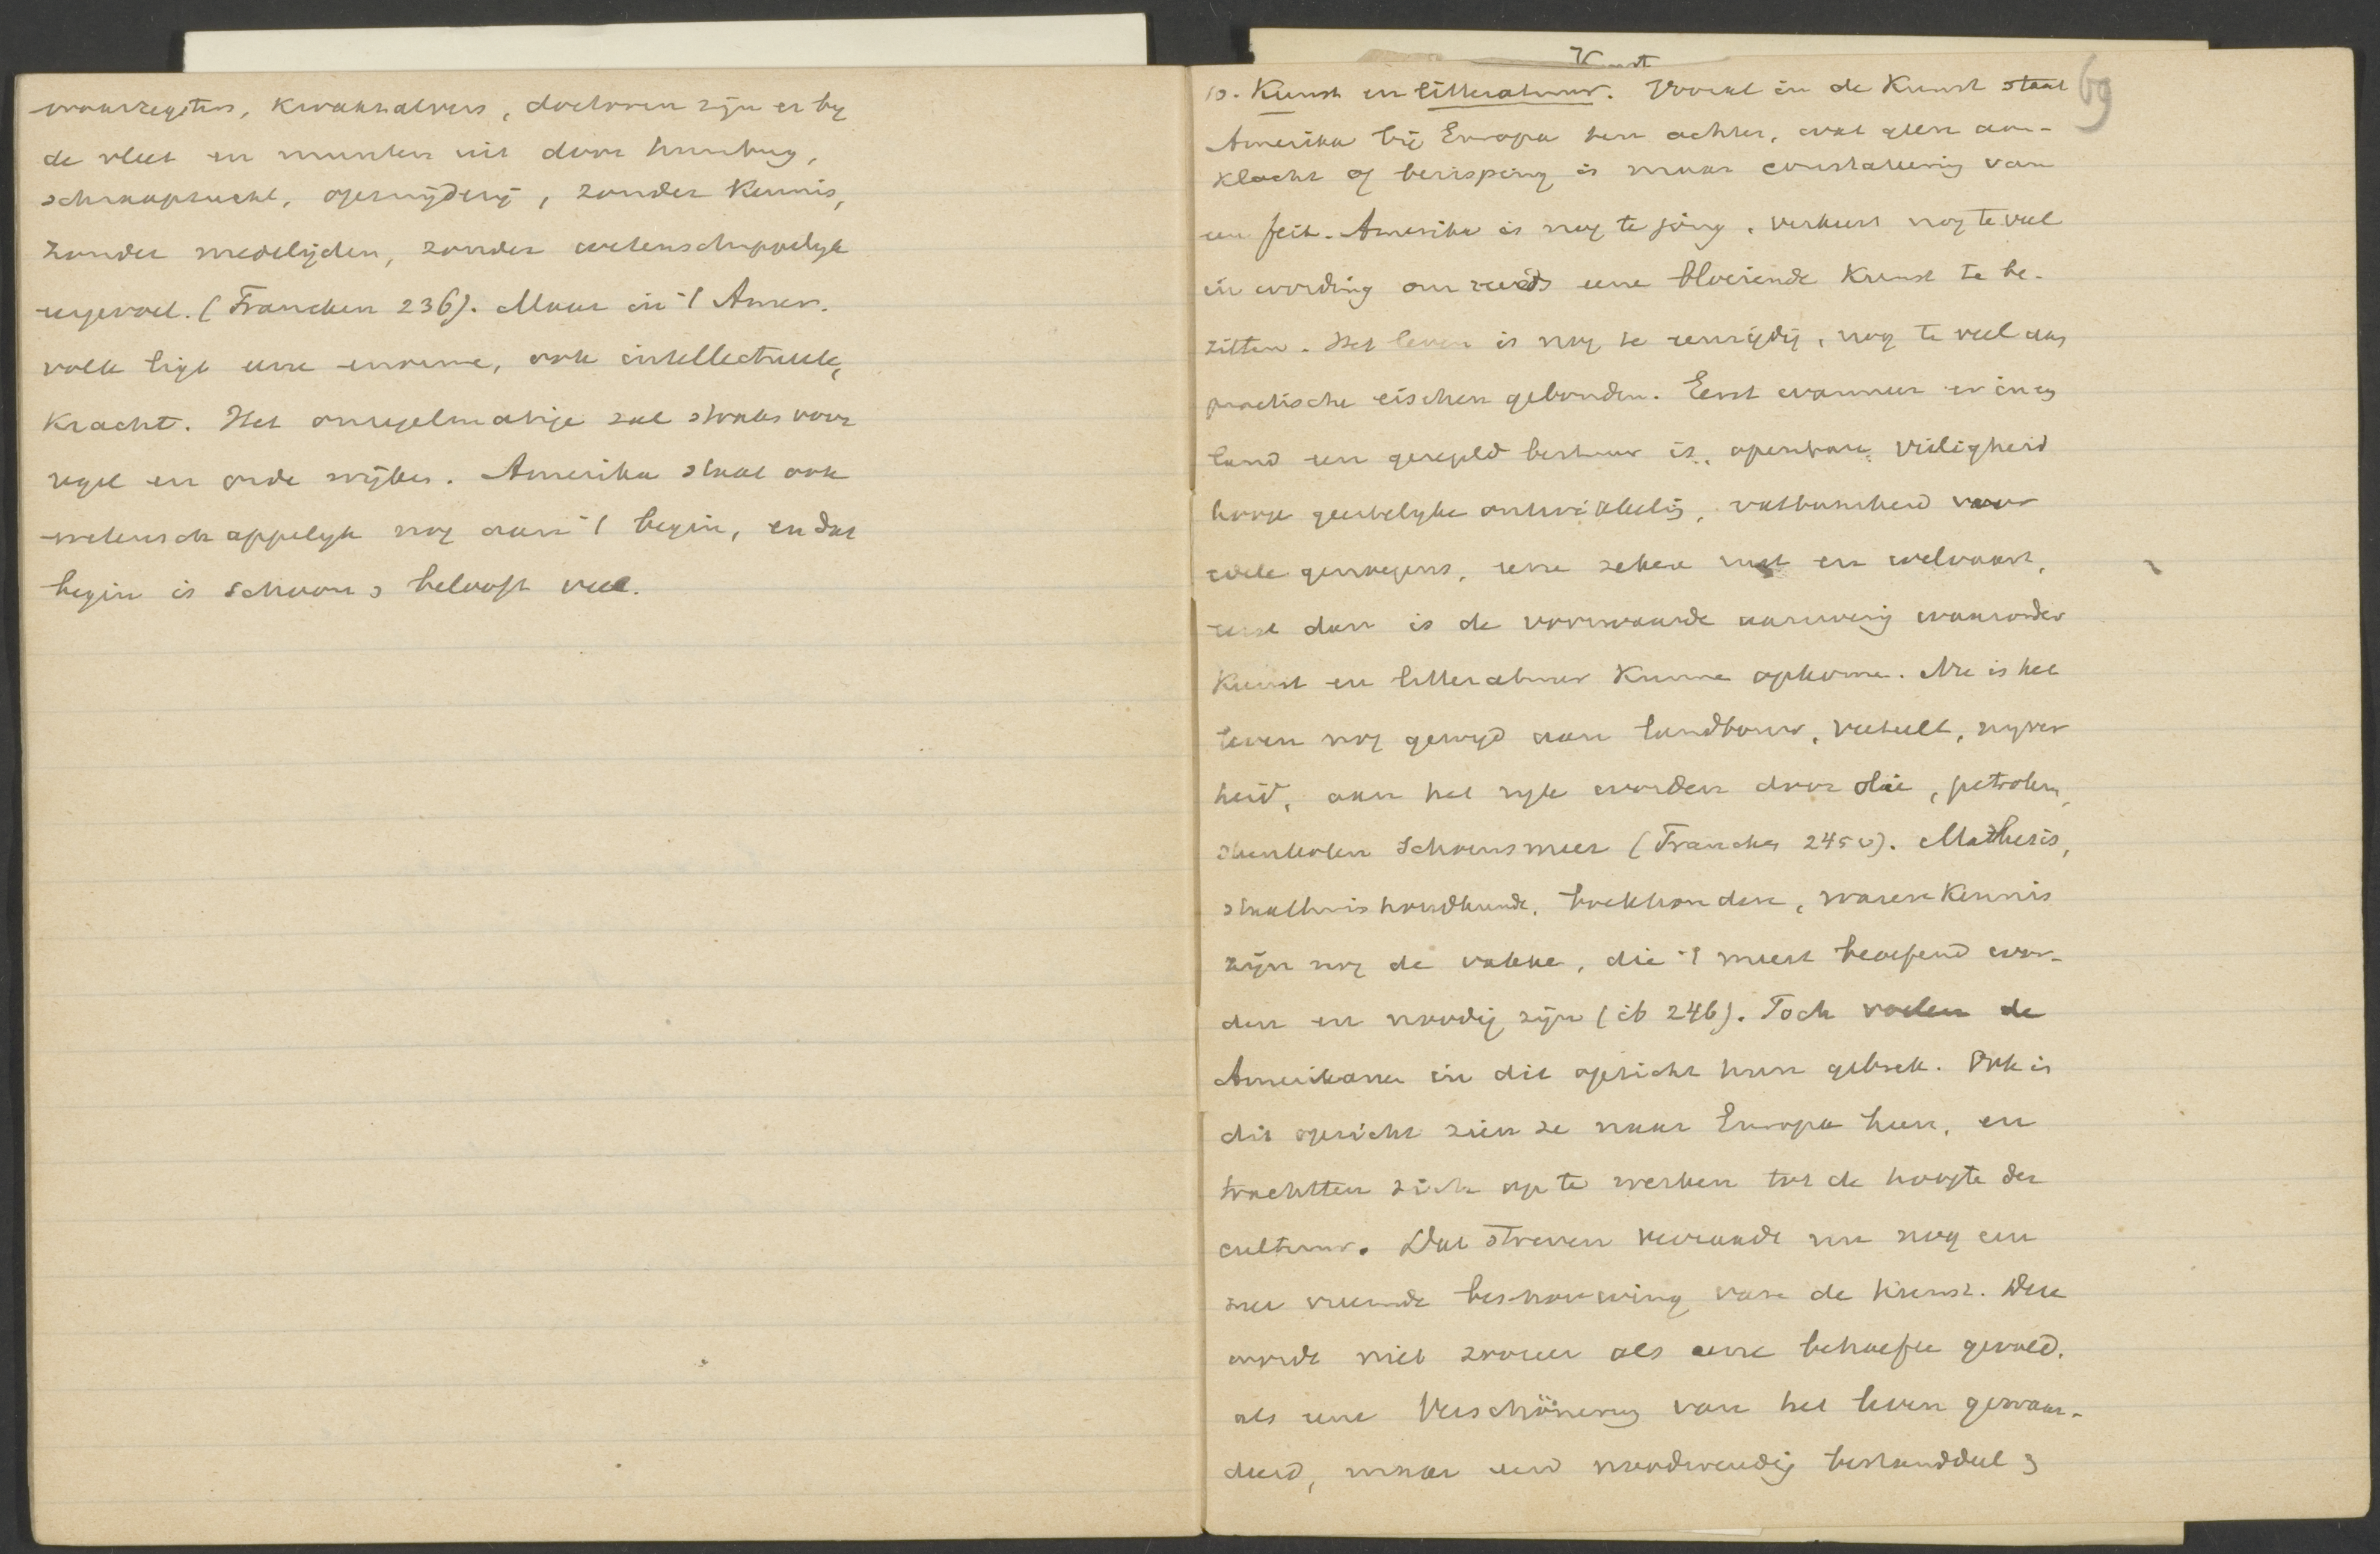 waarzegsters, kwakzalvers, doctoren zijn er by
de vleet en munten uit door humbug,
schraapzucht, opsnijderij, zonder kennis,
zonder medelijden, zonder wetenschappelyk
eergevoel. (Francken 236). Maar in 't Amer.
volk ligt eene enorme, ook intellectueele,
kracht. Het onregelmatige zal straks voor
regel en orde wijken. Amerika staat ook
wetenschappelyk nog aan 't begin, en dat
begin is schoon & belooft veel.
Kunst
10. Kunst en litteratuur. Vooral in de Kunst staat
69
Amerika bij Europa ten achter, wat geen aan-
klacht of berisping is maar constateering van
een feit. Amerika is nog te jong, verkeert nog te veel
in wording om reeds eene bloeiende Kunst te be-
zitten. Het leven is nog te eenzijdig, nog te veel aan
practische eischen gebonden. Eerst wanneer er in eg
land een geregeld bestuur is, openbare veiligheid
hooge geestelyke ontwikkelig, vatbaarheid voor
edele genoegens, eene zekere rust en welvaart,
eerst dan is de voorwaarde aanwezig waaronder
Kunst en litteratuur kunne opkome. Nu is het
leven nog gewyd aan landbouw, veeteelt, nyver
heid, aan het ryk worden door olie, petroleum,
steenkolen schoensmeer (Francken 245 v). Mathesis,
staathuishoudkunde, boekhouden, warenkennis
zijn nog de vakke, die 't meest beoefend wor-
den en noodig zijn (ib 246). Toch voelen de
Amerikane in dit opzicht hun gebrek. Ook in
dit opzicht zien ze naar Europa heen, en
trachtten zich op te werken tot de hoogte der
cultuur. Dat streven verraadt nu nog een
zeer vreemde beschouwing van de kunst. Deze
wordt niet zoozeer als eene behoefte gevoeld,
als eene Verschönerung van het leven gewaar-
deerd, maar een noodwendig bestanddeel &